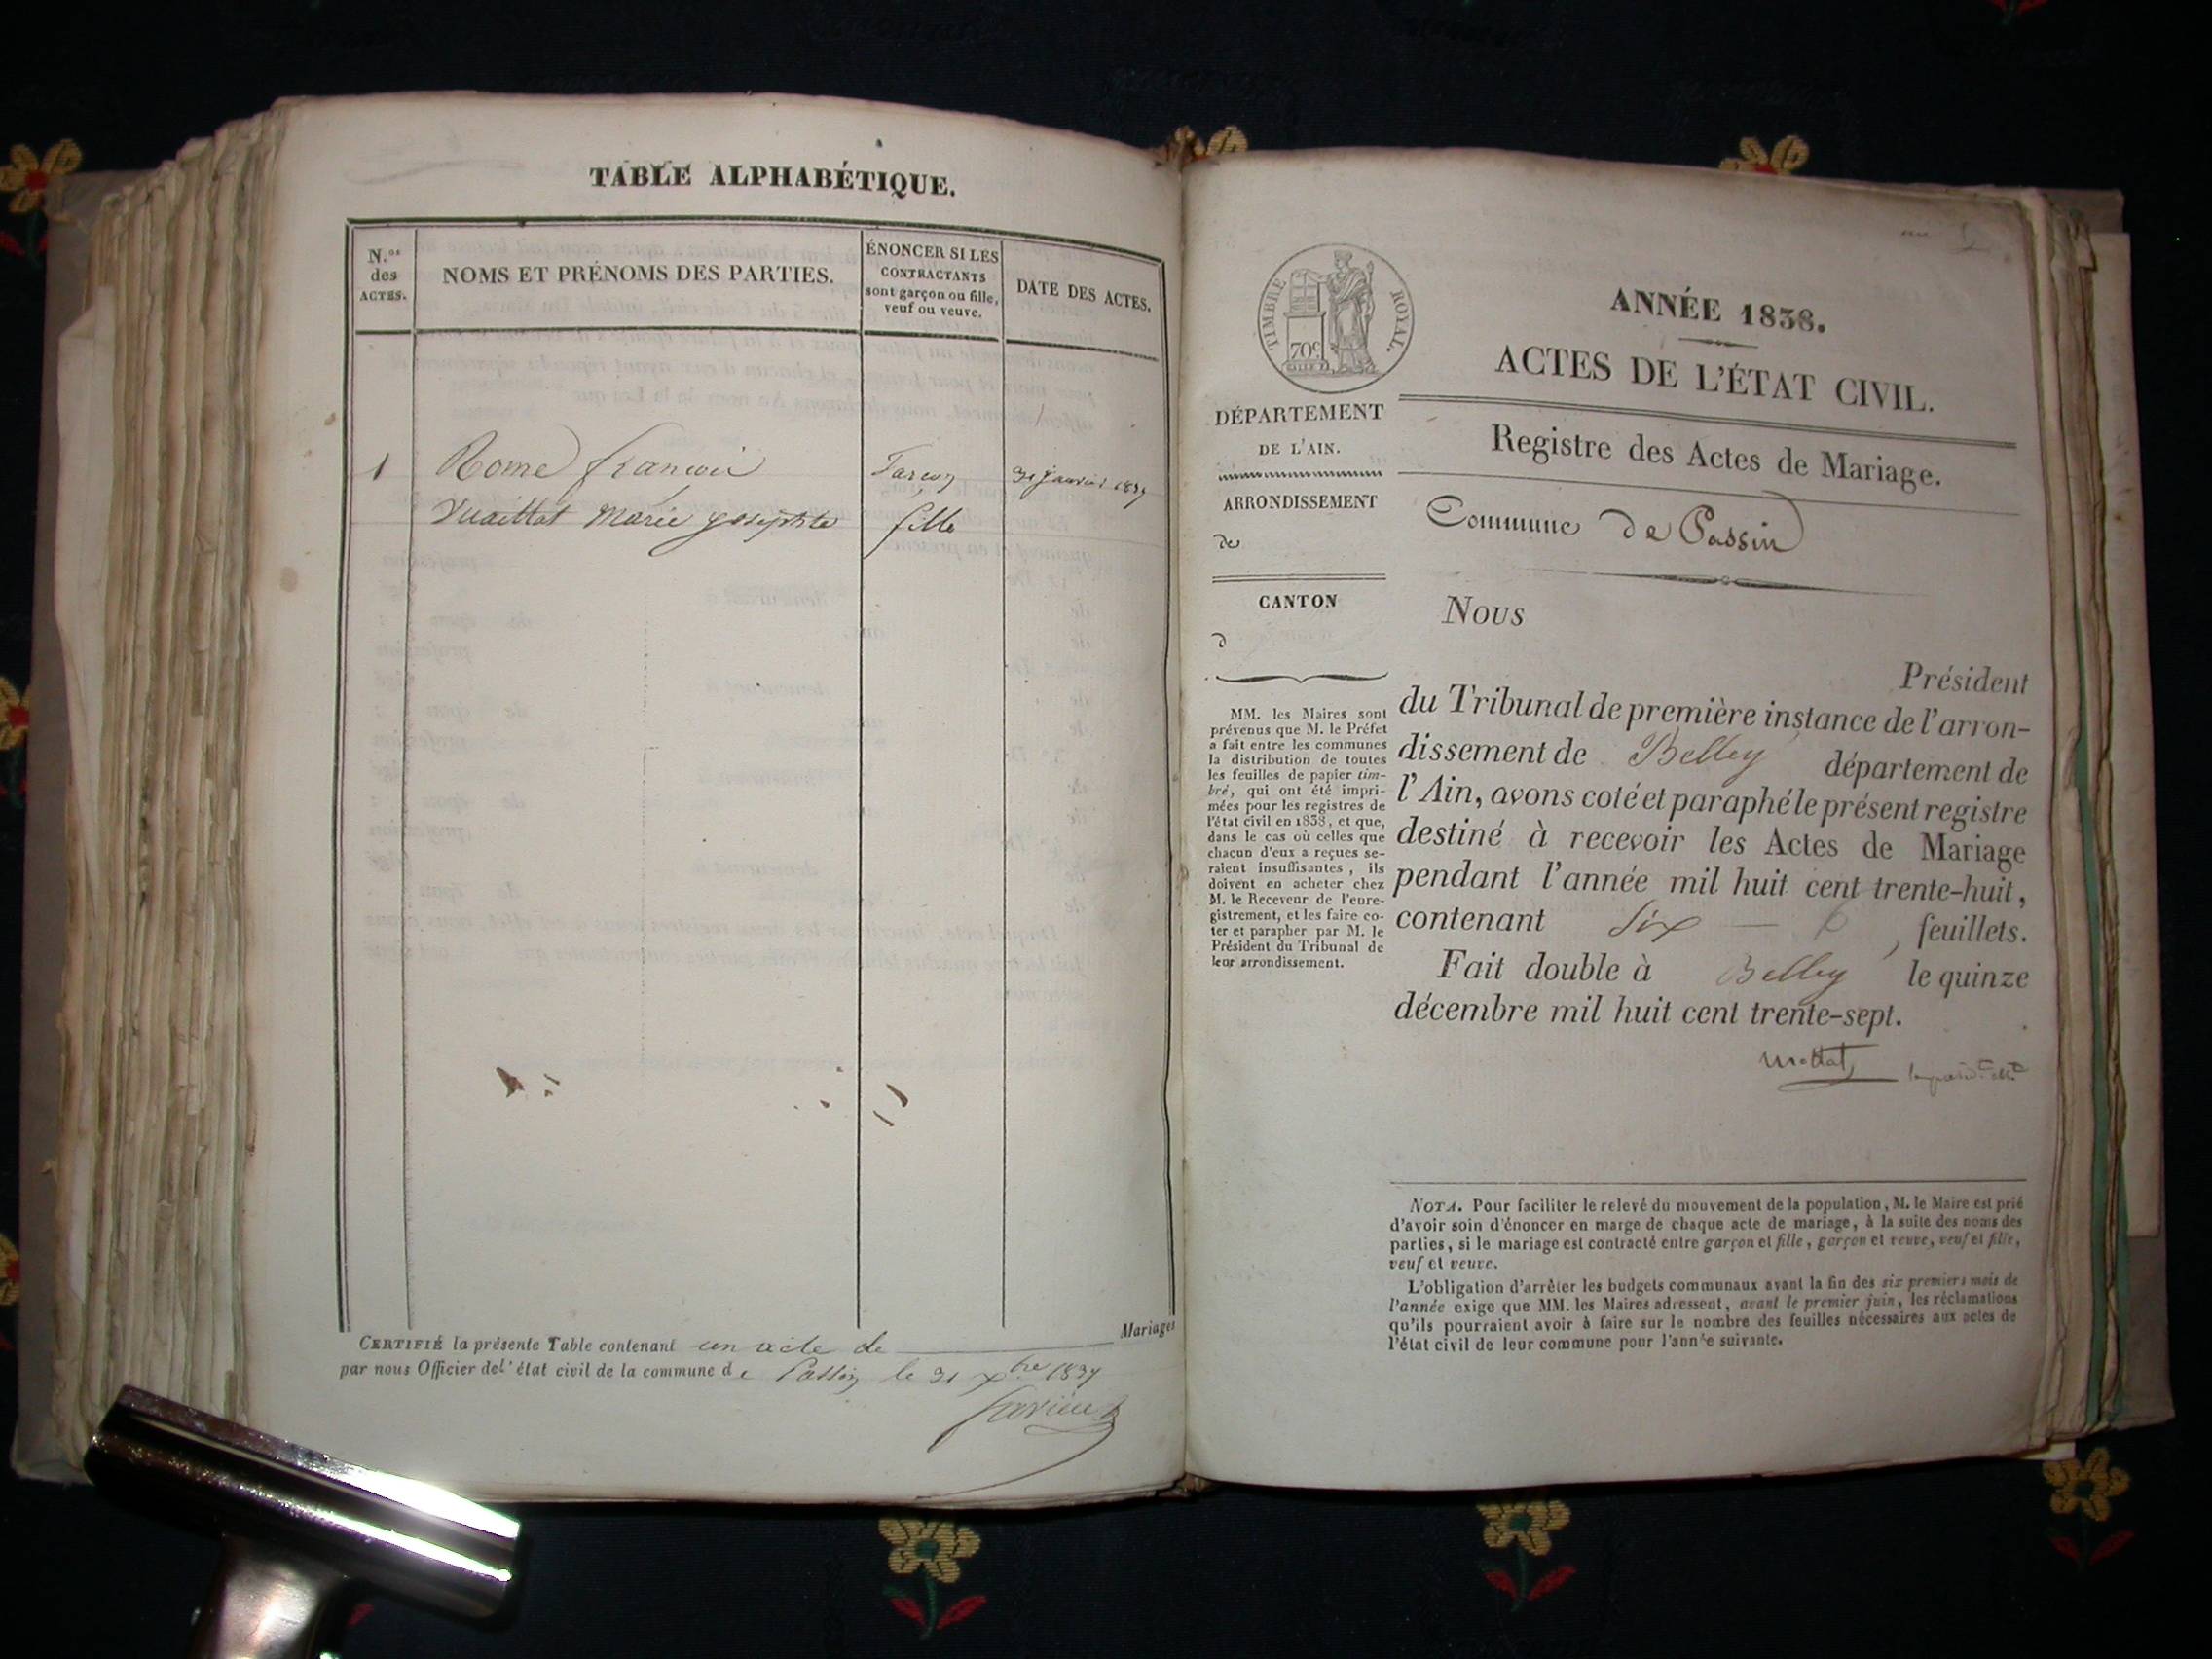 TABLE ALPHABÉTIQUE.
N.os des ACTES.
NOMS ET PRÉNOMS DES PARTIES.
ÉNONCER SI LES
CONTRACTANTS
sont garçon ou fille,
veuf ou veuve.
DATE DES ACTES.
1 Rome françois 31 janvier 1837
Vuaillat Marie josephte fille
CERTIFIÉ la présente Table contenant un acte de Mariages
par nous Officier del' état civil de la commune de Passin le 31 Xbre 1837
TIMBRE ROYAL.
70c
ANNÉE 1838.
ACTES DE L'ÉTAT CIVIL.
Registre des Actes de Mariage.
Commune de Passin
DÉPARTEMENT
DE L'AIN.
ARRONDISSEMENT
de
CANTON
d
MM. les Maires sont
prévenus que M. le Préfet
a fait entre les communes
la distribution de toutes
les feuilles de papier tim-
bré, qui ont été impri-
mées pour les registres de
l'état civil en 1838, et que,
dans le cas où celles que
chacun d'eux a reçues se-
raient insuffisantes, ils
doivent en acheter chez
M. le Receveur de l'enre-
gistrement, et les faire co-
ter et parapher par M. le
Président du Tribunal de
leur arrondissement.
Nous
Président
du Tribunal de première instance de l'arron-
dissement de Belley département de
l'Ain, avons coté et paraphé le présent registre
destiné à recevoir les Actes de Mariage
pendant l'année mil huit cent trente-huit,
contenant six — 6, feuillets.
Fait double à Belley le quinze
décembre mil huit cent trente-sept.
NOTA. Pour faciliter le relevé du mouvement de la population, M. le Maire est prié
d'avoir soin d'énoncer en marge de chaque acte de mariage, à la suite des noms des
parties, si le mariage est contracté entre garçon et fille, garçon et veuve, veuf et fille,
veuf et veuve.
L'obligation d'arrêter les budgets communaux avant la fin des six premiers mois de
l'année exige que MM. les Maires adressent, avant le premier juin, les réclamations
qu'ils pourraient avoir à faire sur le nombre des feuilles nécessaires aux actes de
l'état civil de leur commune pour l'année suivante.